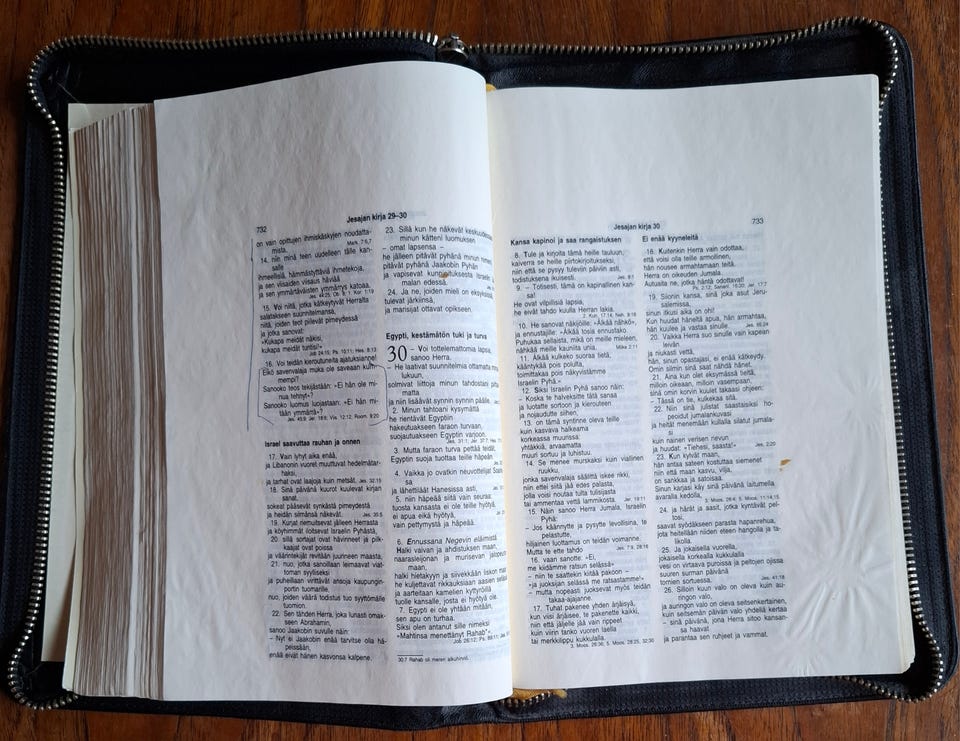 732
Jesajan kirja 29–30
on vain opittujen ihmiskäskyjen noudatta-
mista.
Mark. 7:6,7
14. niin minä teen uudelleen tälle kan-
salle
ihmeellisiä, hämmästyttäviä ihmetekoja,
ja sen viisaiden viisaus häviää
ja sen ymmärtäväisten ymmärrys katoaa.
Jes. 44:25; Ob. 8; 1. Kor. 1:19
15. Voi niitä, jotka kätkeytyvät Herralta
salatakseen suunnitelmansa,
niitä, joiden teot piilevät pimeydessä
ja jotka sanovat:
»Kukapa meidät näkisi,
kukapa meidät tuntisi!»
Job 24:15; Ps. 10:11; Hes. 8:12
16. Voi teidän kieroutuneita ajatuksianne!
Eikö savenvalaja muka ole saveaan kum-
mempi?
Sanooko teos tekijästään: »Ei hän ole mi-
nua tehnyt»?
Sanooko luomus luojastaan: »Ei hän mi-
tään ymmärtä»?
Jes. 45:9; Jer. 18:6; Viis. 12:12; Room. 9:20
Israel saavuttaa rauhan ja onnen
17. Vain lyhyt aika enää,
ja Libanonin vuoret muuttuvat hedelmätar-
haksi,
ja tarhat ovat laajoja kuin metsät.
Jes. 32:15
18. Sinä päivänä kuurot kuulevat kirjan
sanat,
sokeat pääsevät synkästä pimeydestä
ja heidän silmänsä näkevät.
Jes. 35:5
19. Kurjat riemuitsevat jälleen Herrasta
ja köyhimmät iloitsevat Israelin Pyhästä,
20. sillä sortajat ovat hävinneet ja pilk-
kaajat ovat poissa
ja väärintekijät revitään juurineen maasta,
21. nuo, jotka sanoillaan leimaavat viat-
toman syylliseksi
ja puheillaan virittävät ansoja kaupungin-
portin tuomarille,
nuo, joiden väärä todistus tuo syyttömälle
tuomion.
22. Sen tähden Herra, joka lunasti omak-
seen Abrahamin,
sanoo Jaakobin suvulle näin:
– Nyt ei Jaakobin enää tarvitse olla hä-
peissään,
enää eivät hänen kasvonsa kalpene.
23. Sillä kun he näkevät keskuudessaan
minun kätteni luomuksen
– omat lapsensa –
he jälleen pitävät pyhänä minun nimeni,
pitävät pyhänä Jaakobin Pyhän
ja vapisevat kunnioituksesta Israelin Ju-
malan edessä.
24. Ja ne, joiden mieli on eksyksissä,
tulevat järkiinsä,
ja marisijat ottavat opikseen.
Egypti, kestämätön tuki ja turva
30 – Voi tottelemattomia lapsia,
sanoo Herra.
– He laativat suunnitelmia ottamatta minua
lukuun,
solmivat liittoja minun tahdostani piittaa-
matta
ja niin lisäävät synnin synnin päälle.
2. Minun tahtoani kysymättä
he rientävät Egyptiin
hakeutuakseen faraon turvaan,
suojautuakseen Egyptin varjoon.
3. Mutta faraon turva pettää teidät,
Egyptin suoja tuottaa teille häpeän.
4. Vaikka jo ovatkin neuvottelijat Soanis-
sa
ja lähettiläät Hanesissa asti,
5. niin häpeää siitä vain seuraa:
tuosta kansasta ei ole teille hyötyä,
ei apua eikä hyötyä,
vain pettymystä ja häpeää.
6. Ennussana Negevin eläimistä
Halki vaivan ja ahdistuksen maan,
naarasleijonan ja murisevan jalopeuran
maan,
halki hietakyyn ja siivekkään liskon maan
he kuljettavat rikkauksiaan aasien selässä
ja aarteitaan kamelien kyttyröillä
tuolle kansalle, josta ei hyötyä ole.
7. Egypti ei ole yhtään mitään,
sen apu on turhaa.
Siksi olen antanut sille nimeksi
»Mahtinsa menettänyt Rahab».
30:7 Rahab oli meren alkuhirviö.
Jesajan kirja 30
733
Kansa kapinoi ja saa rangaistuksen
8. Tule ja kirjoita tämä heille tauluun,
kaiverra se heille piirtokirjoitukseksi,
niin että se pysyy tuleviin päiviin asti,
todistuksena ikuisesti.
Jes. 8:1
9. – Totisesti, tämä on kapinallinen kan-
sa!
He ovat vilpillisiä lapsia,
he eivät tahdo kuulla Herran lakia.
2. Kun. 17:14; Neh. 9:16
10. He sanovat näkijöille: »Älkää nähkö»,
ja ennustajille: »Älkää tosia ennustako.
Puhukaa sellaista, mikä on meille mieleen,
nähkää meille kauniita unia.
Miika 2:11
11. Älkää kulkeko suoraa tietä,
kääntykää pois polulta,
toimittakaa pois näkyvistämme
Israelin Pyhä.»
12. Siksi Israelin Pyhä sanoo näin:
– Koska te halveksitte tätä sanaa
ja luotatte sortoon ja kierouteen
ja nojaudutte siihen,
13. on tämä syntinne oleva teille
kuin kasvava halkeama
korkeassa muurissa:
yhtäkkiä, arvaamatta
muuri sortuu ja luhistuu.
14. Se menee murskaksi kuin viallinen
ruukku,
jonka savenvalaja säälittä iskee rikki,
niin ettei siitä jää edes palasta,
jolla voisi noutaa tulta tulisijasta
tai ammentaa vettä lammikosta.
Jer. 19:11
15. Näin sanoo Herra Jumala, Israelin
Pyhä:
– Jos käännytte ja pysytte levollisina, te
pelastutte,
hiljainen luottamus on teidän voimanne.
Mutta te ette tahdo
Jes. 7:9, 28:16
16. vaan sanotte: »Ei,
me kiidämme ratsun selässä»
– niin te saattekin kiitää pakoon –
»ja juoksijan selässä me ratsastamme!»
– mutta nopeasti juoksevat myös teidän
takaa-ajajanne.
17. Tuhat pakenee yhden ärjäisyä,
kun viisi ärjäisee, te pakenette kaikki,
niin että jäljelle jää vain rippeet
kuin viirin tanko vuoren laella
tai merkkilippu kukkulalla.
3. Moos. 26:36; 5. Moos. 28:25, 32:30
Ei enää kyyneleitä
18. Kuitenkin Herra vain odottaa,
että voisi olla teille armollinen,
hän nousee armahtamaan teitä.
Herra on oikeuden Jumala.
Autuaita ne, jotka häntä odottavat!
Ps. 2:12; Sananl. 16:20; Jer. 17:7
19. Siionin kansa, sinä joka asut Jeru-
salemissa,
sinun itkusi aika on ohi!
Kun huudat häneltä apua, hän armahtaa,
hän kuulee ja vastaa sinulle.
Jes. 65:24
20. Vaikka Herra suo sinulle vain kapean
leivän
ja niukasti vettä,
hän, sinun opastajasi, ei enää kätkeydy.
Omin silmin sinä saat nähdä hänet.
21. Aina kun olet eksymässä tieltä,
milloin oikeaan, milloin vasempaan,
sinä omin korvin kuulet takaasi ohjeen:
– Tässä on tie, kulkekaa sitä.
22. Niin sinä julistat saastaisiksi ho-
peoidut jumalankuvasi
ja heität menemään kullalla silatut jumala-
si
kuin nainen verisen rievun
ja huudat: »Tiehesi, saasta!»
Jes. 2:20
23. Kun kylvät maan,
hän antaa sateen kostuttaa siemenet
niin että maan kasvu, vilja,
on sankkaa ja satoisaa.
Sinun karjasi käy sinä päivänä laitumella
avaralla kedolla,
3. Moos. 26:4; 5. Moos. 11:14,15
24. ja härät ja aasit, jotka kyntävät pel-
tosi,
saavat syödäkseen parasta hapanrehua,
jota heitellään niiden eteen hangolla ja ta-
likolla.
25. Ja jokaisella vuorella,
jokaisella korkealla kukkulalla
vesi on virtaava puroissa ja peltojen ojissa
suuren surman päivänä
tornien sortuessa.
Jes. 41:18
26. Silloin kuun valo on oleva kuin au-
ringon valo,
ja auringon valo on oleva seitsenkertainen,
kuin seitsemän päivän valo yhdellä kertaa
– sinä päivänä, jona Herra sitoo kansan-
sa haavat
ja parantaa sen ruhjeet ja vammat.